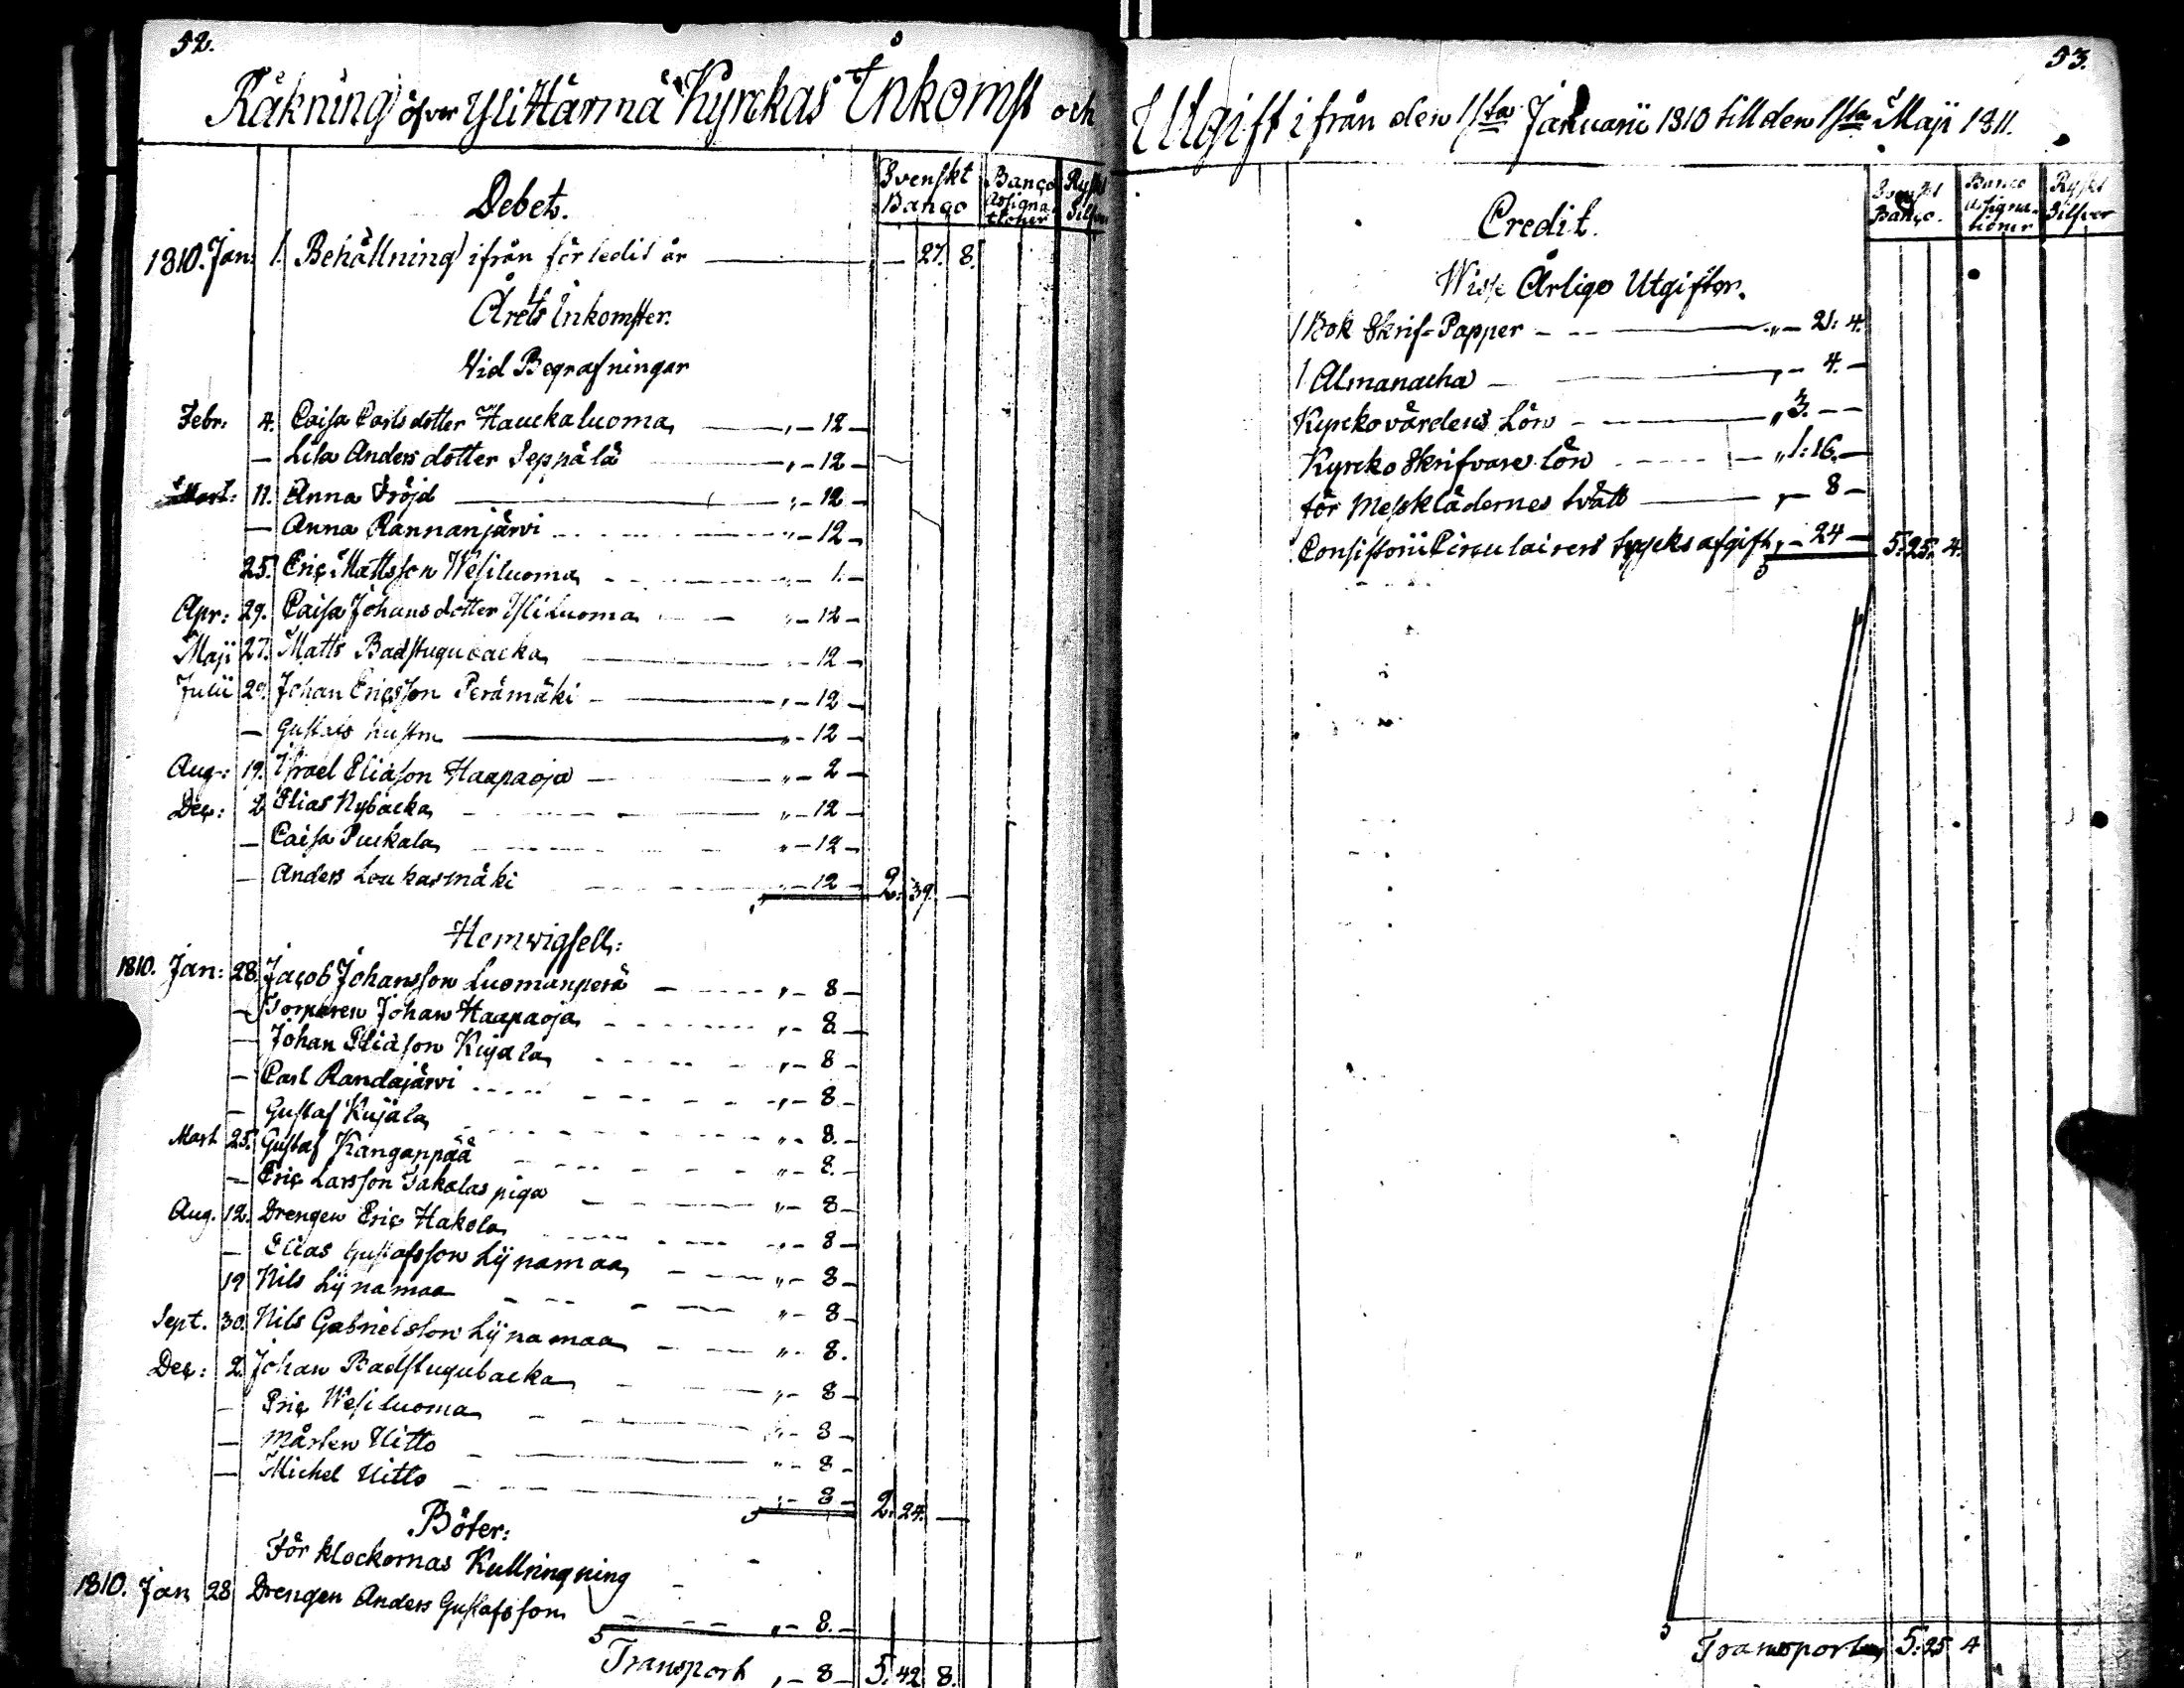 52.
Räkning öfver YliHärmä Kyrckas Inkomst och
Svenskt Banco
Banco Assignationer
Ryskt Silfver
Debet.
1810. Jan: 1. Behållning ifrån förledit år — 27. 8.
Årets Inkomster.
Vid Begrafningar
Febr: 4. Caisa Carlsdotter Hauckaluoma „ - 12 -
— Lisa Andersdotter Seppälä „ - 12 -
Mart: 11. Anna Fröjd „ - 12 -
— Anna Rannanjärvi „ - 12 -
25. Eric Mattsson Wesiluoma „ - 1. -
Apr: 29. Caisa Johansdotter Yliluoma „ - 12 -
Maji 27. Matts Badstugubacka „ - 12 -
Julii 29. Johan Ericsson Perämäki „ - 12 -
— Gustafs hustru „ - 12 -
Aug: 19. Israel Eliasson Haapaoja „ - 2 -
Dec: 2 Elias Nybacka „ - 12 -
— Caisa Puckala „ - 12 -
— Anders Loukasmäki „ - 12 - 2. 39. —
Hemvigsell:
1810. Jan: 28. Jacob Johansson Luomanperä „ - 8 -
— Torparen Johan Haapaoja „ - 8. -
— Johan Eliasson Kujala „ - 8 -
— Carl Randajärvi „ - 8. -
— Gustaf Kujala „ - 8. -
Mart 25. Gustaf Kanganpää „ - 8. -
— Eric Larsson Takalas piga „ - 8 -
Aug. 12. Drengen Eric Hakola „ - 8 -
— Elias Gustafsson Lijnamaa „ - 8 -
19 Nils Lijnamaa „ - 8 -
Sept. 30. Nils Gabrielsson Lijnamaa „ - 8.
Dec: 2. Johan Badstugubacka „ - 8 -
— Eric Wesiluoma „ - 8 -
— Mårten Uitto „ - 8 -
— Michel Uitto „ - 8 - 2. 24. —
Böter:
För klockornas Kullringning
1810. Jan 28 Drengen Anders Gustafsson „ - 8. -
Transport „ - 8 - 5. 42 8.
53.
Utgift ifrån den 1sta Januarii 1810 till den 1sta Maji 1811.
Svenskt Banco.
Banco Assignationer
Ryskt Silfver
Credit.
Wisse Årlige Utgifter.
1 Bok Skrif-Papper „ - 21: 4.
1 Almanacha „ - 4. -
Kyrckovärdens Lön „ 3. - -
Kyrcko Skrifvare lön „ 1: 16. -
för Messklädernes tvätt „ - 8 -
Consistorii Circulairers trycksafgift „ - 24 - 5. 25. 4.
Transport 5. 25 4